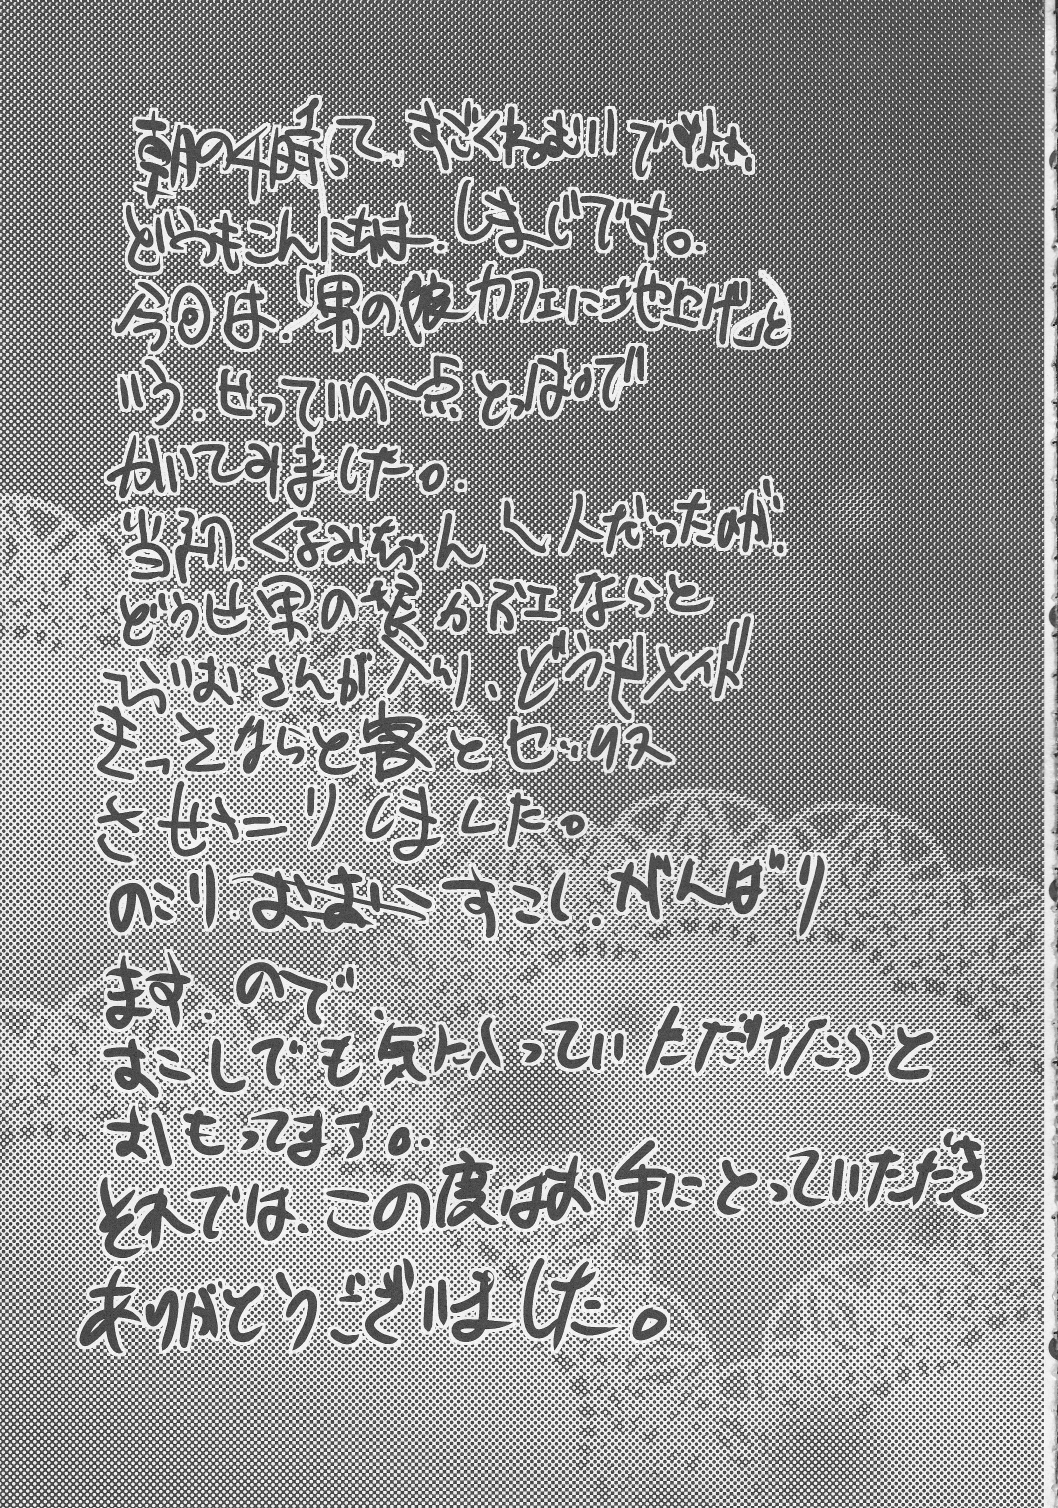 朝の4時って、すごくねむいですよね
どうもこんにちは、しまじです。
今回は、「男の娘カフェに地上げ」と
いう、せっていの一点とっぱで
かいてみました。
当初、くるみちゃん1人だったのが、
どうせ男の娘かふェならと
おさんが入り、どうせメイド
きっさならと客とセックス
させたりしました。
のこり、すこし、がんばり
ます、ので、
すこしでも気に入っていただけたらと
おもってます。
それでは、この度はお手にとっていただき
ありがとうございました。